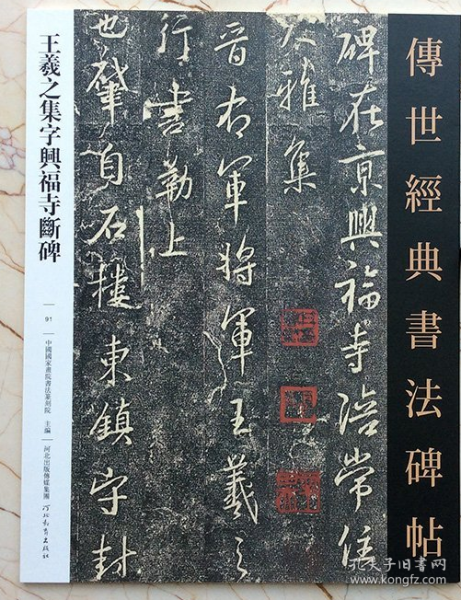 傳世經典書法碑帖
碑在京興福寺陪常住
大雅集
晉右軍將軍王羲之
行書勒上
也肇自石樓東鎮守封
王羲之集字興福寺斷碑
91
中國國家畫院書法篆刻院 主編
河北出版傳媒集團 河北教育出版社
孔夫子旧书网
www.kongfz.com